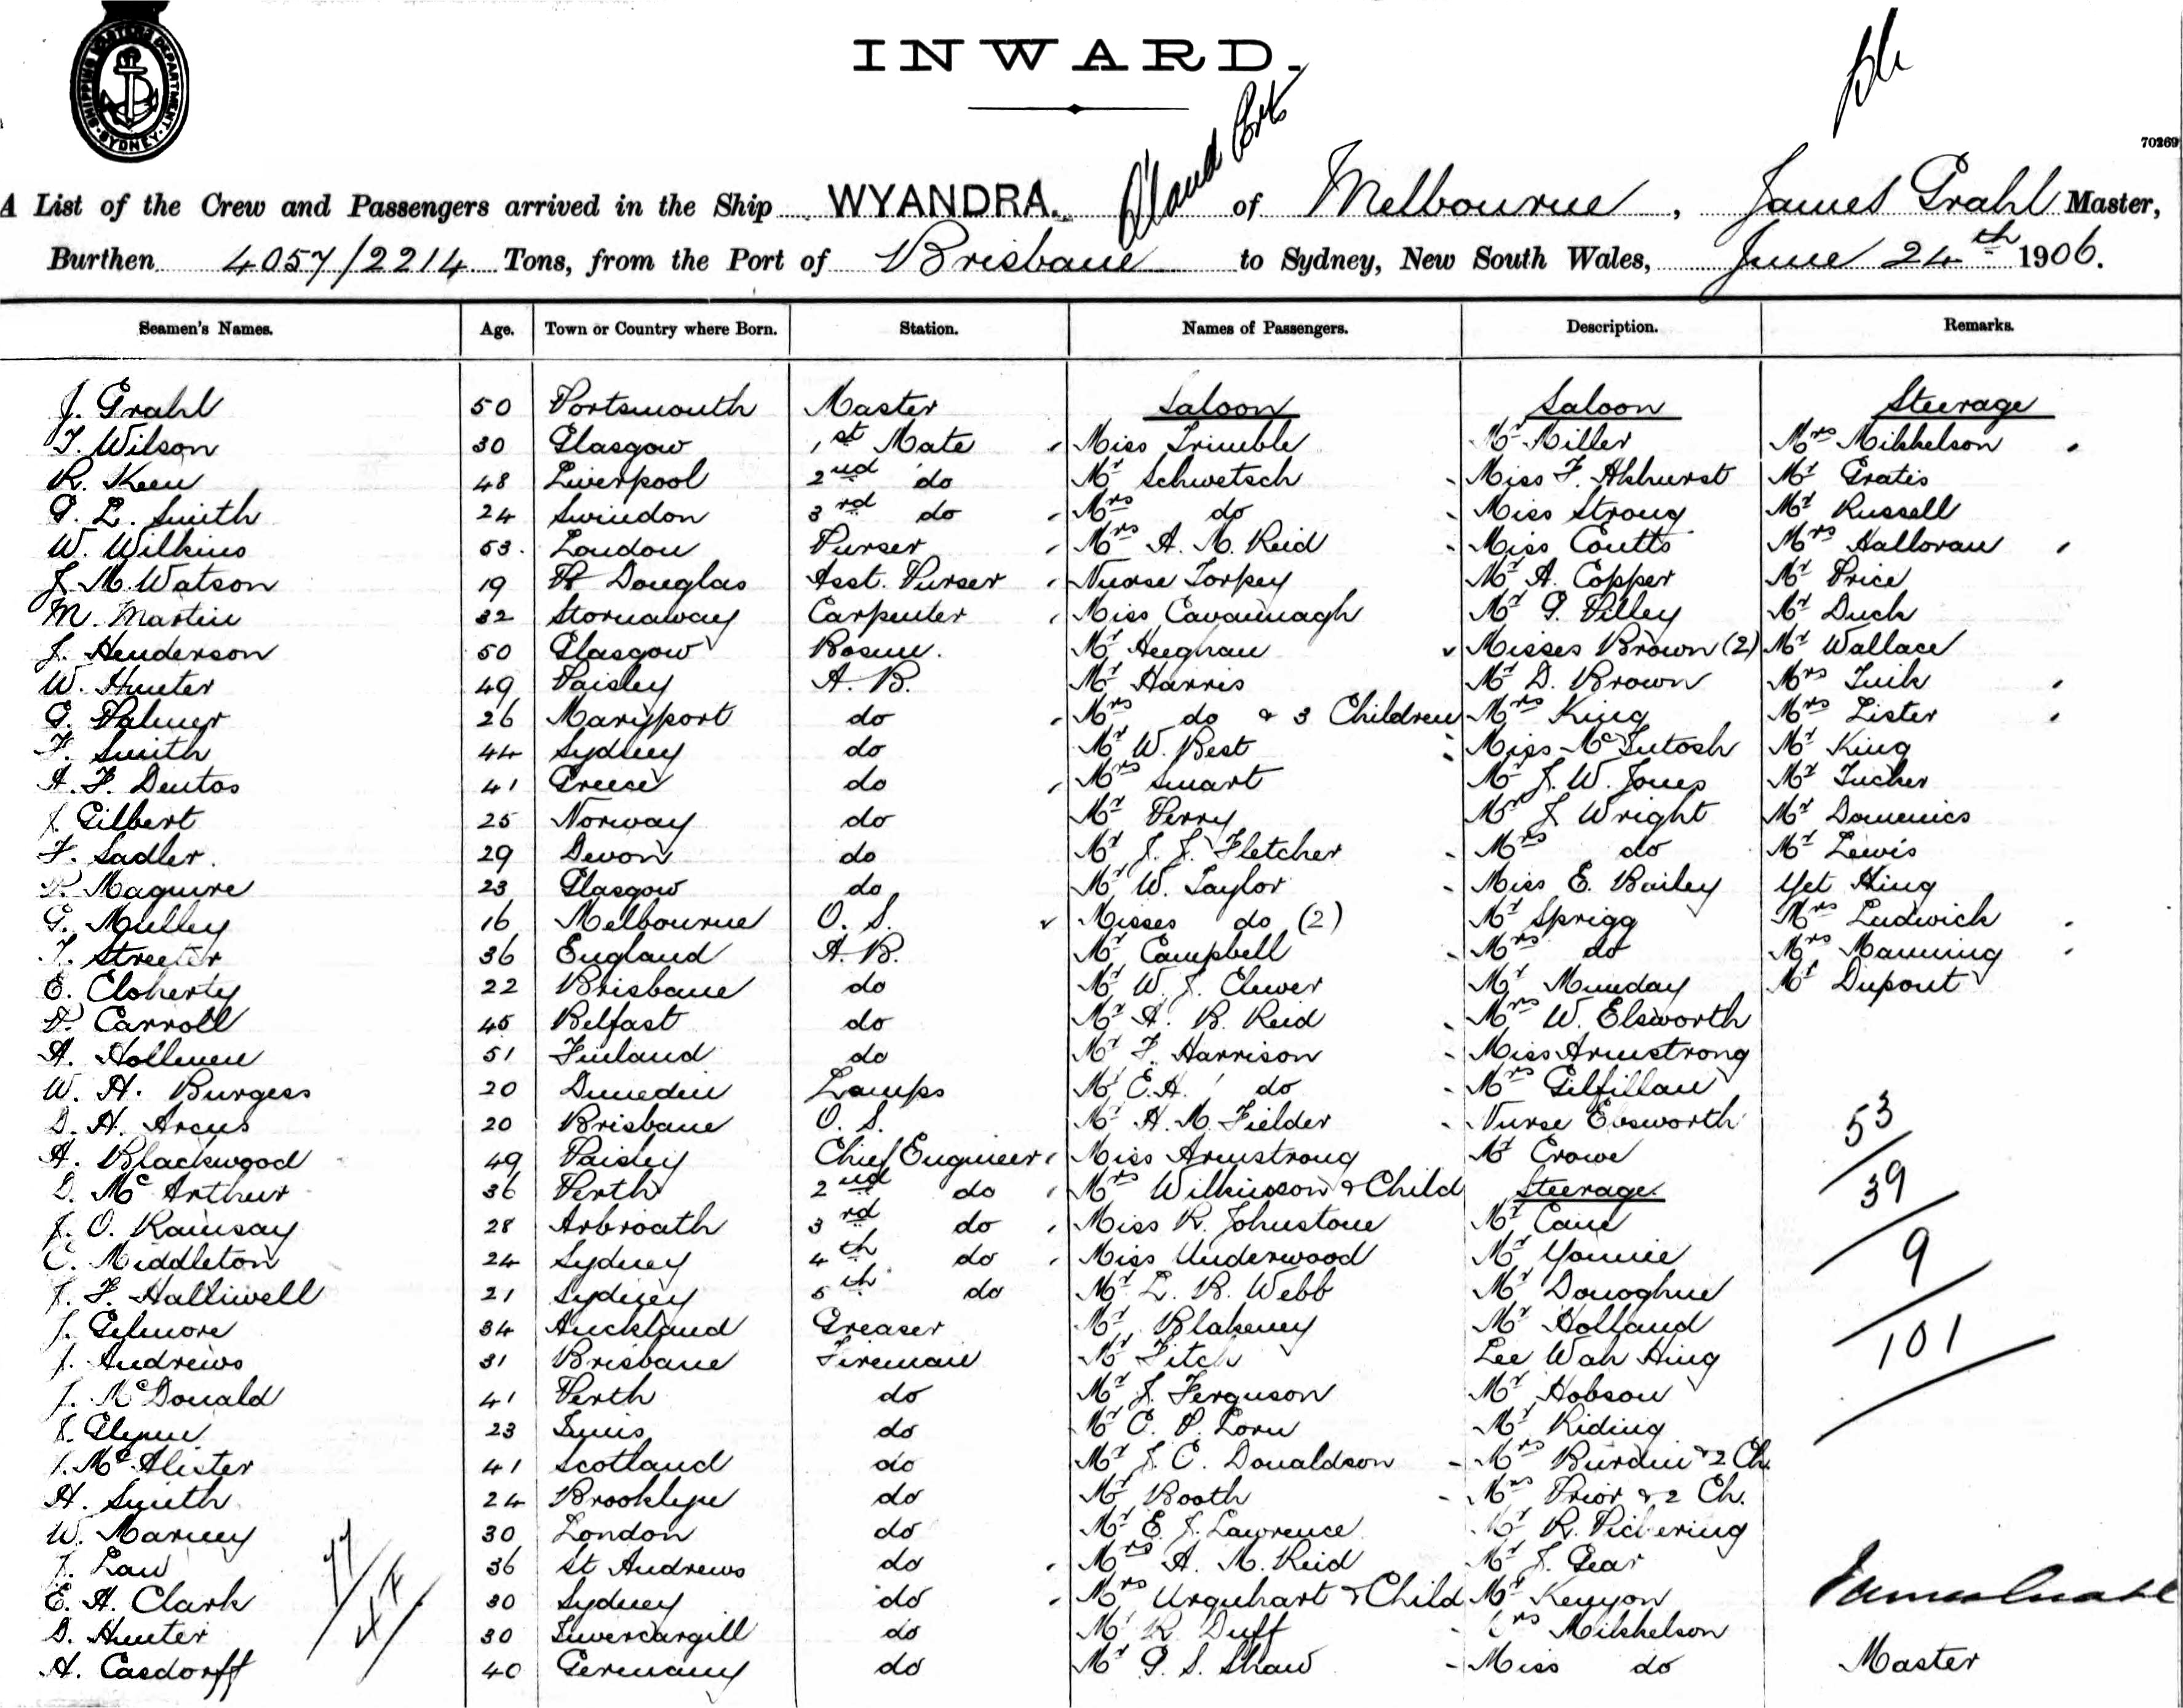 SHIPPING MASTERS DEPARTMENT SYDNEY
INWARD.
70269
A List of the Crew and Passengers arrived in the Ship WYANDRA. of Melbourne, James Grahl Master,
Burthen 4057/2214 Tons, from the Port of Brisbane to Sydney, New South Wales, June 24th 1906.
Seamen's Names. Age. Town or Country where Born. Station. Names of Passengers. Description. Remarks.
J. Grahl 50 Portsmouth Master Saloon Saloon Steerage
T. Wilson 30 Glasgow 1st Mate Miss Trimble Mr Miller Mrs Mikkelson
R. Keen 48 Liverpool 2nd do Mr Schwetsch Miss F. Akhurst Mr Gratis
G. L. Smith 24 Swindon 3rd do Mrs do Miss Strong Mr Russell
W. Wilkins 53. London Purser Mrs A. M. Reid Miss Coutts Mrs Halloran
J. M. Watson 19 Pt Douglas Asst. Purser Nurse Torpey Mr A. Copper Mr Price
M. Martin 32 Stornaway Carpenter Miss Cavannagh Mr G. Pilley Mr Duck
J. Henderson 50 Glasgow Bosun. Mr Heegnan Misses Brown (2) Mr Wallace
W. Hunter 49 Paisley A. B. Mr Harris Mr D. Brown Mrs Tuik
G. Palmer 26 Maryport do Mrs do & 3 Children Mrs King Mrs Lister
F. Smith 44 Sydney do Mr W. Best Miss McIntosh Mr King
A. F. Dentos 41 Greece do Mrs Smart Mr J. W. Jones Mr Tucker
J. Gilbert 25 Norway do Mr Perry Mr J Wright Mr Domenics
F. Sadler. 29 Devon do Mr J. J. Fletcher Mrs do Mr Lewis
P. Maguire 23 Glasgow do Mr W. Taylor Miss E. Bailey Yet Hing
G. Mulley 16 Melbourne O. S. Misses do (2) Mr Sprigg Mrs Ludwick
T. Streeter 36 England A. B. Mr Campbell Mrs do Mrs Manning
E. Cloherty 22 Brisbane do Mr W. J. Cluver Mr Munday Mr Dupont
P. Carroll 45 Belfast do Mr A. B. Reid Mrs W. Elsworth
A. Hollmen 51 Finland do Mr F. Harrison Miss Armstrong
W. H. Burgess 20 Dunedin Lamps Mr E.H. do Mrs Gilfillan
D. H. Arcus 20 Brisbane O. S. Mr H. M. Fielder Nurse Ebsworth 53
A. Blackwood 49 Paisley Chief Engineer Miss Armstrong Mr Crowe
D. McArthur 36 Perth 2nd do Mrs Wilkinson & Child Steerage. 39
J. O. Ramsay 28 Arbroath 3rd do Miss R. Johnstone Mr Cane
C. Middleton 24 Sydney 4th do Miss Underwood Mr Younie 9
J. F. Halliwell 21 Sydney 5th do Mr L. B. Webb Mr Donoghue
J. Gilmore 34 Auckland Greaser Mr Blakeney Mr Holland 101
J. Andrews 31 Brisbane Fireman Mr Fitch Lee Wah Hing
J. McDonald 41 Perth do Mr J. Ferguson Mr Hobson
J. Glynn 23 do Mr C. P. Lorn Mr Riding
J. McAlister 41 Scotland do Mr J. C. Donaldson Mrs Burdin & 2 Ch.
H. Smith 24 Brooklyn do Mr Booth Mrs Prior & 2 Ch.
W. Marney 30 London do Mr E. J. Lawrence Mr R. Pickering
J. Law 36 St Andrews do Mrs A. M. Reid Mr J. Gear
E. H. Clark 30 Sydney do Mrs Urquhart & Child Mr Kenyon James Grahl
D. Hunter 30 Invercargill do Mr R Duff Mrs Mikkelson
A. Casdorff 40 Germany do Mr G. S. Shaw Miss do Master